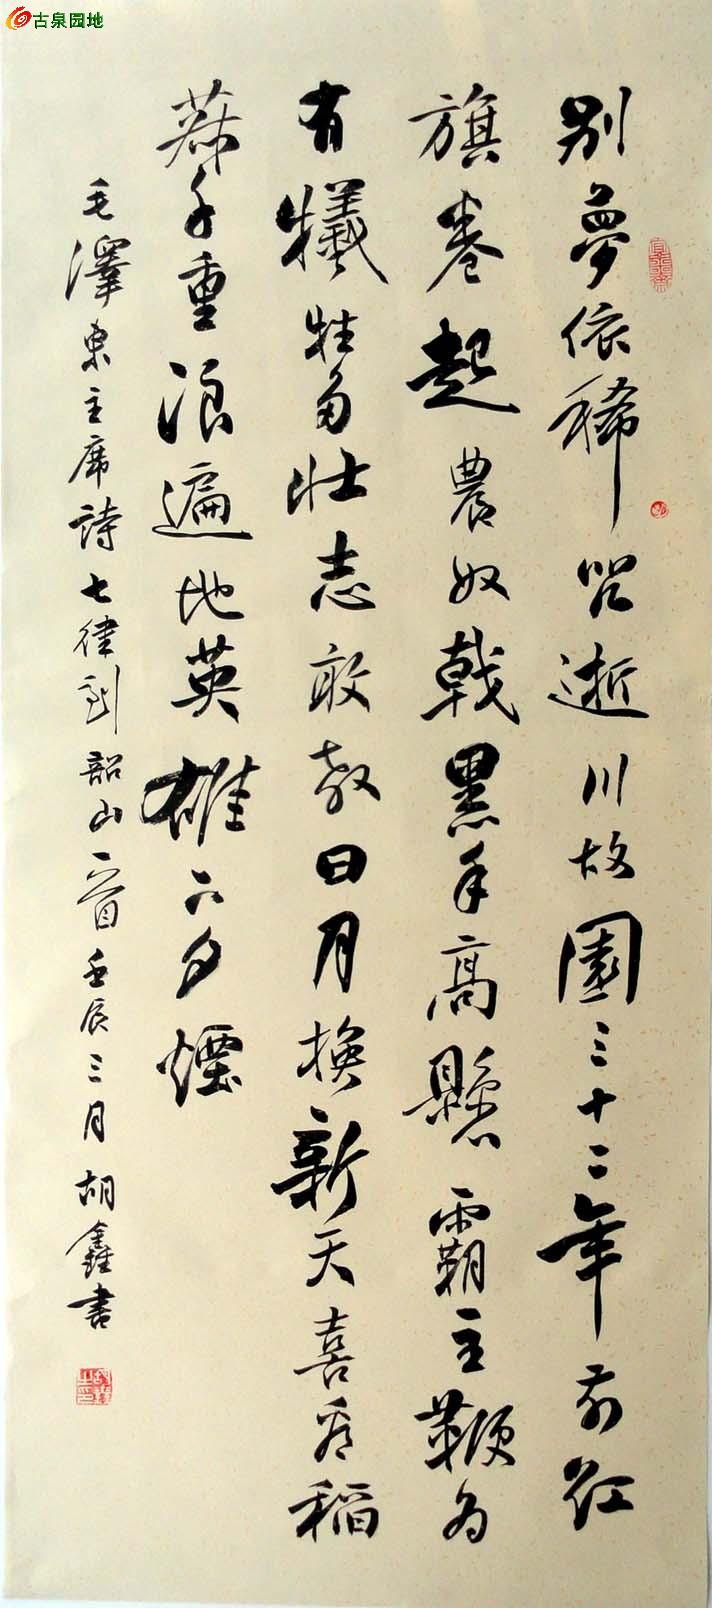 古泉园地
别夢依稀咒逝川故園三十二年前红
旗卷起農奴戟黑手高懸霸主鞭为
有犧牲多壮志敢教日月换新天喜看稻
菽千重浪遍地英雄下夕煙
毛澤東主席詩七律到韶山一首壬辰三月胡鑫書